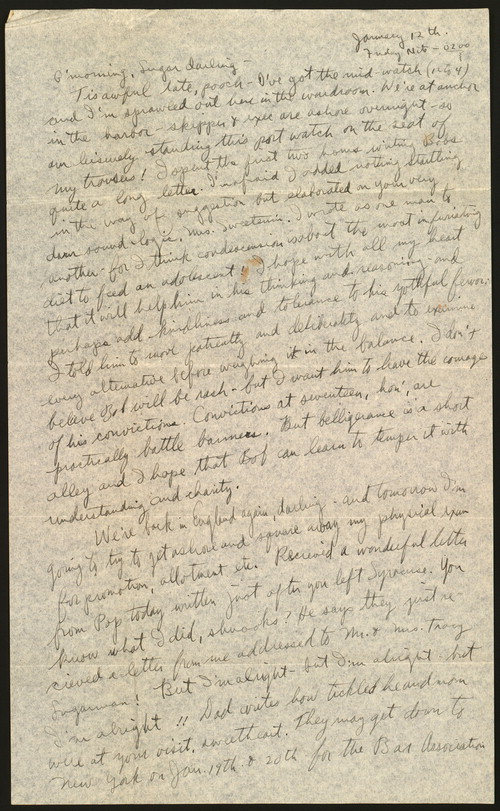 January 12th.
Friday Nite - 0200
G'morning, sugar darling -
'Tis awful late, pooch - I've got the mid-watch (12 to 4)
and I'm sprawled out here in the wardroom. We're at anchor
in the harbor - skipper & exec are ashore overnight - so
am leisurely standing this port watch on the seat of
my trousers! I spent the first two hours writing Bob
quite a long letter. I'm afraid I added nothing startling
in the way of suggestion but elaborated on your very
darn sound logic, Mrs. Sweetenin. I wrote as one man to
another - for I think condescension is about the most infuriating
diet to feed an adolescent! I hope with all my heart
that it will help him in his thinking and reasoning - and
perhaps add kindliness and tolerance to his youthful fervor.
I told him to move patiently and deliberately and to examine
every alternative before weighing it in the balance. I don't
believe Bob will be rash - but I want him to have the courage
of his convictions. Convictions at seventeen, hon', are
practically battle banners. But belligerance is a short
alley and I hope that Bob can learn to temper it with
understanding and charity.
We're back in England again, darling - and tomorrow I'm
going to try to get ashore and square away my physical exam
for promotion, allotment etc. Recieved a wonderful letter
from Pop today written just after you left Syracuse. You
know what I did, shmooks? He says they just re-
cieved a letter from me addressed to Mr. & Mrs. Tracy
Sugarman! But I'm alright - but I'm alright - but
I'm alright!! Dad writes how tickled he and mom
were at your visit, sweetheart. They may get down to
New York on Jan. 19th & 20th for the Bar Association